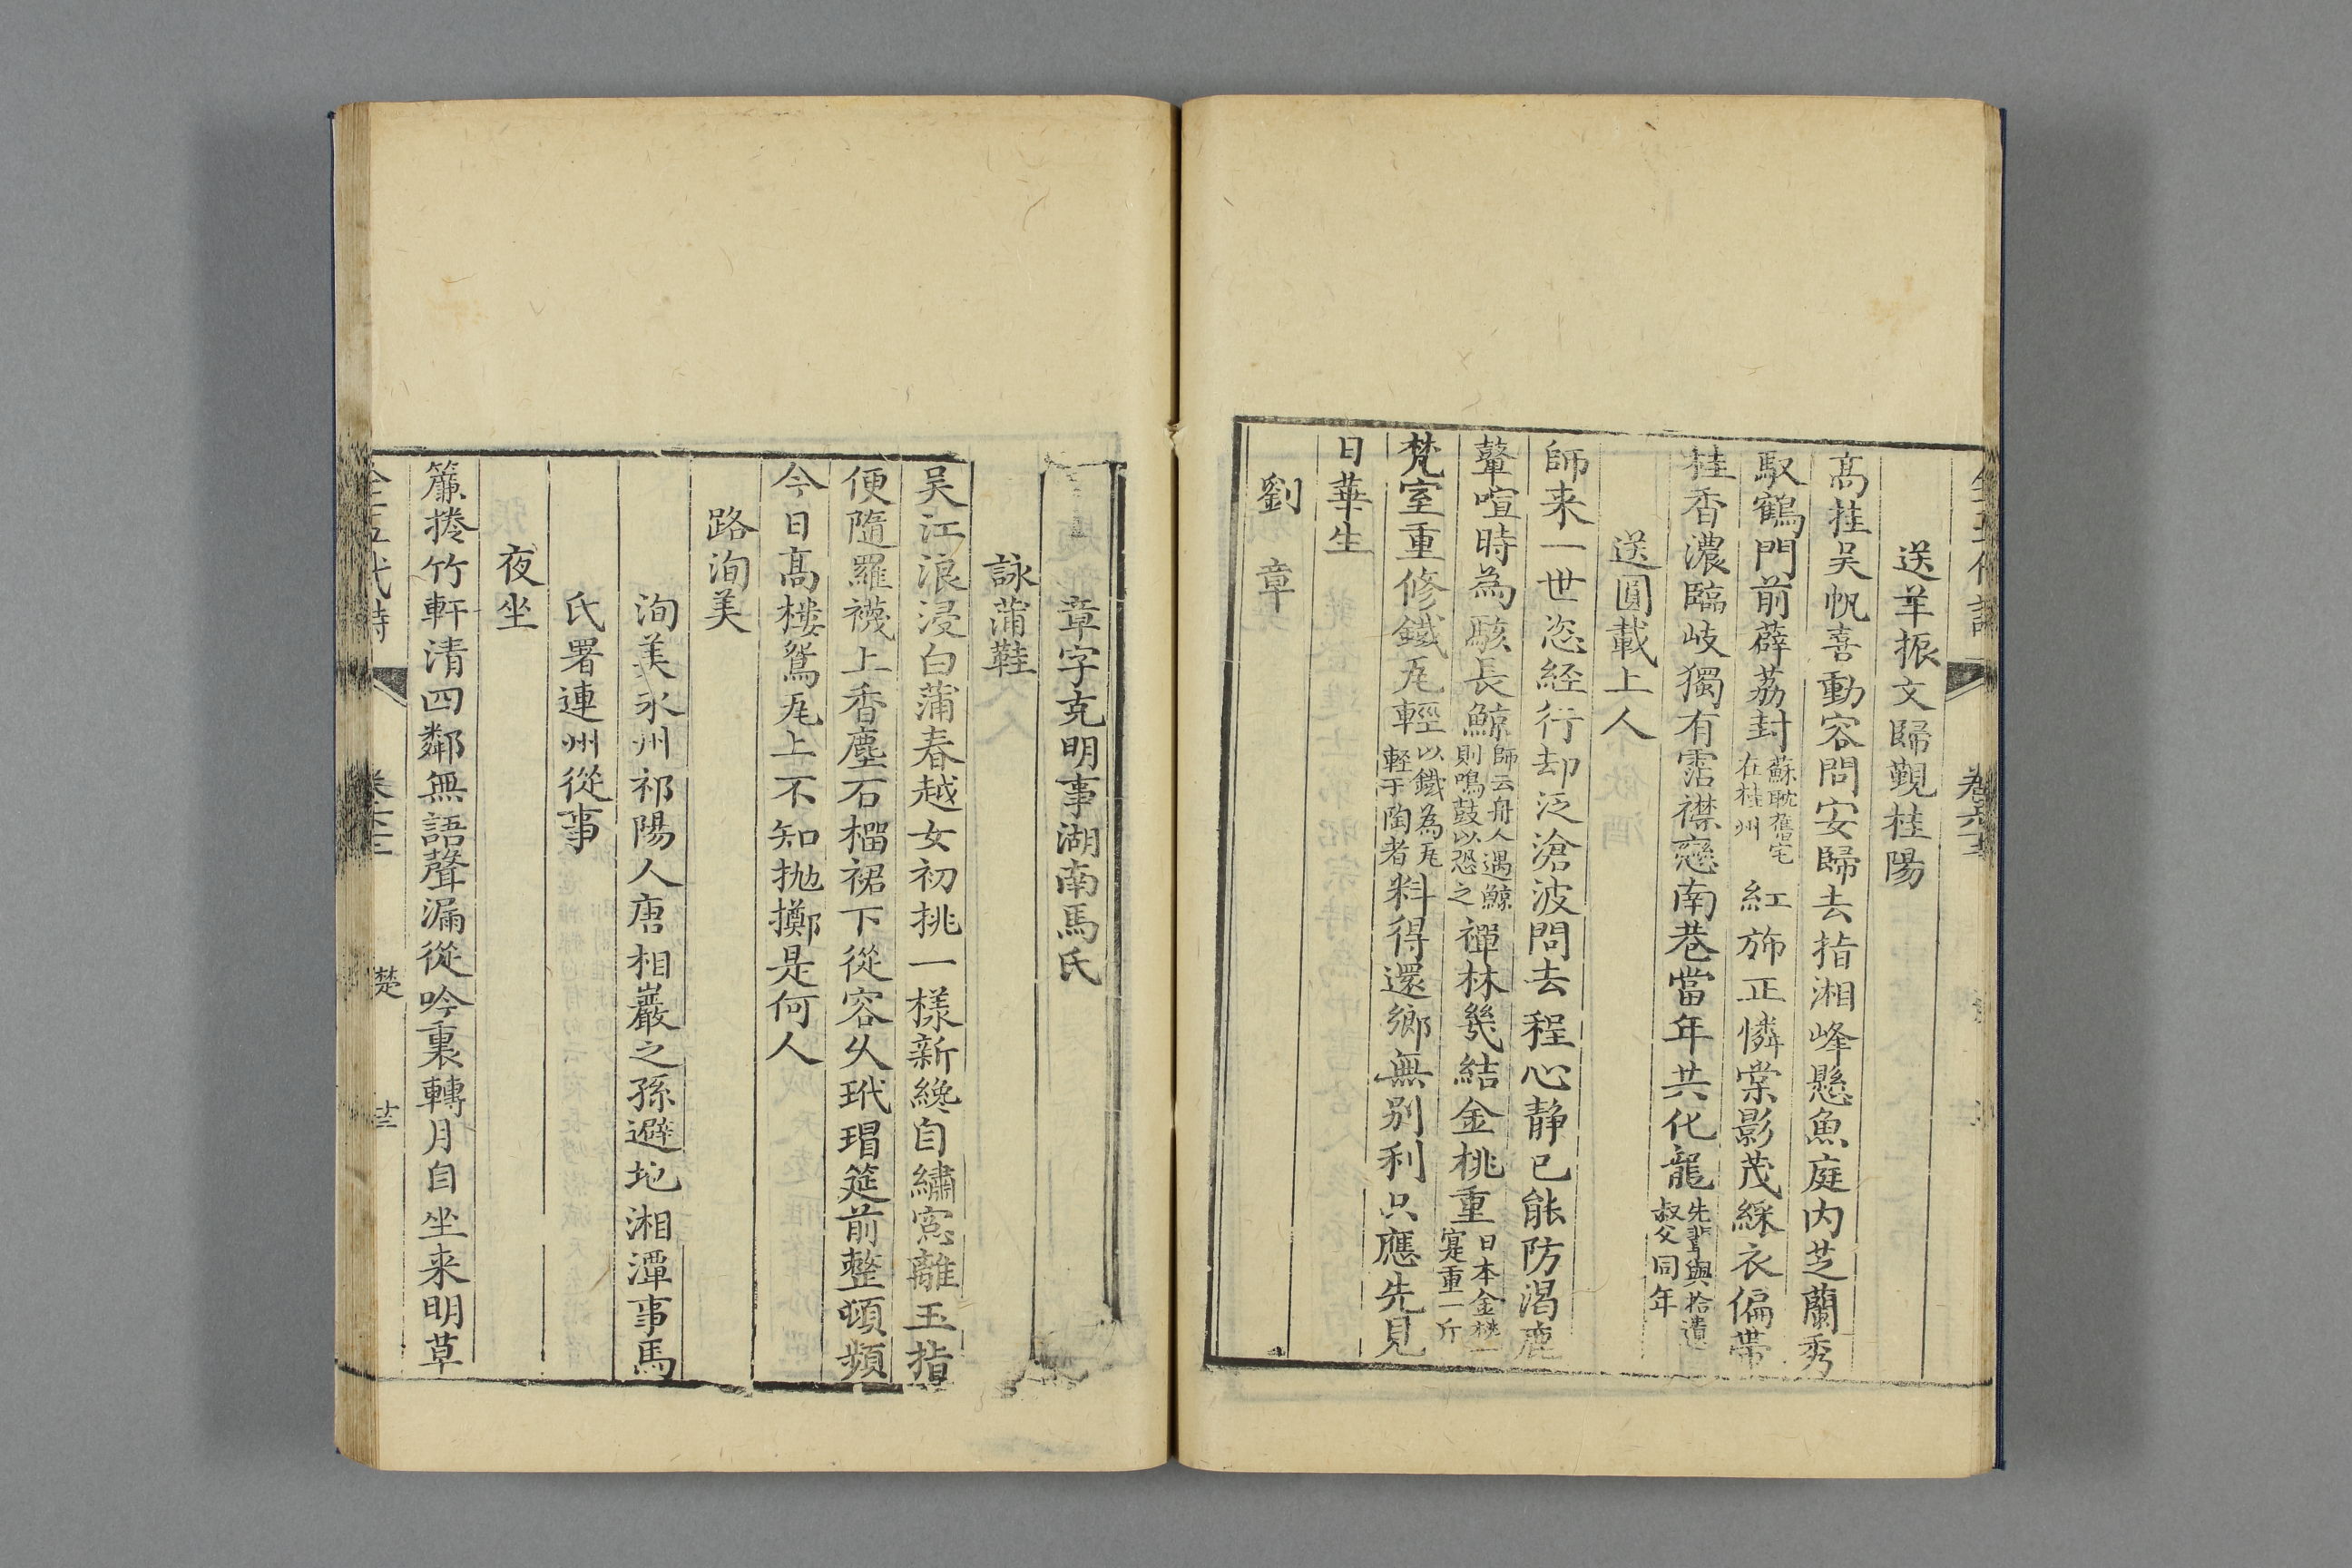 送羊振文歸覲桂陽
髙挂吴帆喜動容問安歸去指湘峰懸魚庭内芝蘭秀
馭鶴門前薜荔封蘇耽舊宅在桂州紅斾正憐棠影茂綵衣偏帶
桂香濃臨岐獨有霑襟戀南巷當年共化龍先輩與拾遺叔父同年
送圓載上人
師来一世恣経行却泛滄波問去程心静已能防渴鹿
鼙喧時為駭長鯨師云舟人遇鯨則鳴鼓以恐之禪林幾結金桃重日本金桃一寔重一斤
梵室重修鐵瓦輕以鐵為瓦輕于陶者料得還鄉無别利只應先見
日華生
劉章
章字克明事湖南馬氏
詠蒲鞋
吴江浪浸白蒲春越女初挑一樣新纔自繡窓離玉指
便隨羅襪上香塵石榴裙下從容乆玳瑁筵前整頓頻
今日髙樓鴛瓦上不知抛擲是何人
路洵美
洵美永州祁陽人唐相巖之孫避地湘潭事馬
氏署連州從事
夜坐
簾捲竹軒清四鄰無語聲漏從吟裏轉月自坐来明草
全五代詩
楚